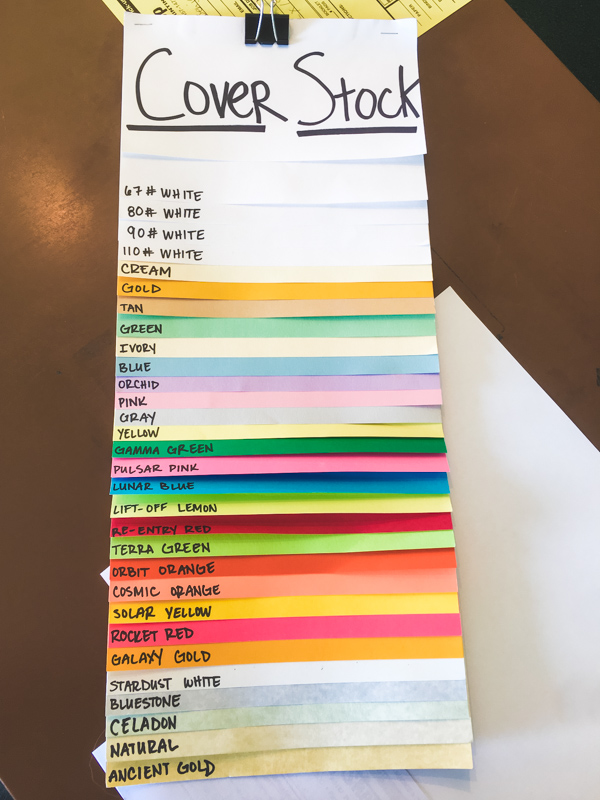 Cover Stock
67# WHITE
80# WHITE
90# WHITE
110# WHITE
CREAM
GOLD
TAN
GREEN
IVORY
BLUE
ORCHID
PINK
GRAY
YELLOW
GAMMA GREEN
PULSAR PINK
LUNAR BLUE
LIFT-OFF LEMON
RE-ENTRY RED
TERRA GREEN
ORBIT ORANGE
COSMIC ORANGE
SOLAR YELLOW
ROCKET RED
GALAXY GOLD
STARDUST WHITE
BLUESTONE
CELADON
NATURAL
ANCIENT GOLD